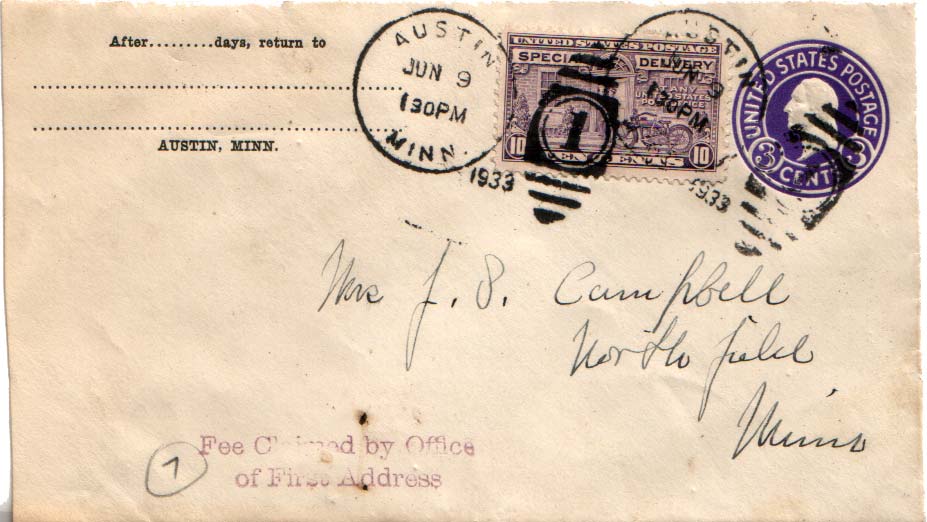 After.........days, return to
AUSTIN, MINN.
AUSTIN
JUN 9
1 30PM
MINN.
1933
UNITED STATES POSTAGE
SPECIAL DELIVERY
ANY
UNITED STATES
POST OFFICE
10 TEN CENTS 10
1
AUSTIN
JUN 9
130PM
1933
UNITED STATES POSTAGE
3 CENTS 3
Mrs J. S. Campbell
Northfield
Minn
Fee Claimed by Office
of First Address
7